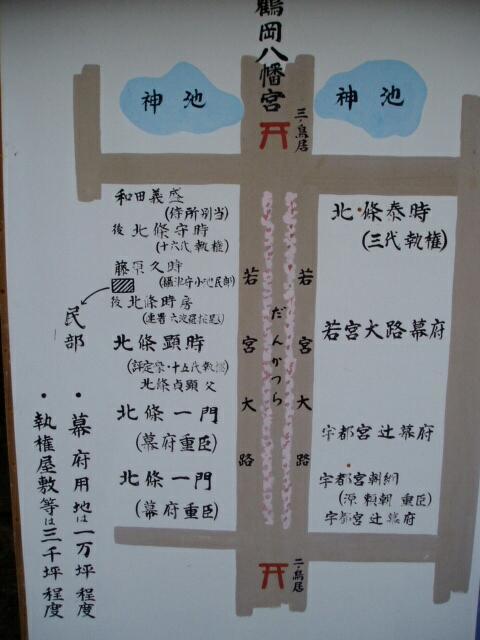 鶴岡八幡宮
三ノ鳥居
神池
神池
和田義盛
(侍所別当)
後 北條守時
(十六代執権)
藤原久時
(攝津守小地民部)
後 北條時房
(連署 六波羅探題)
北條顕時
(評定衆・十五代執権)
北條貞顕父
北條一門
(幕府重臣)
北條一門
(幕府重臣)
若宮大路
だんかつら
若宮大路
北條泰時
(三代執権)
若宮大路幕府
宇都宮辻幕府
宇都宮朝綱
(源頼朝 重臣)
宇都宮辻幕府
二ノ鳥居
民部
・幕府用地は一万坪程度
・執権屋敷等は三千坪程度